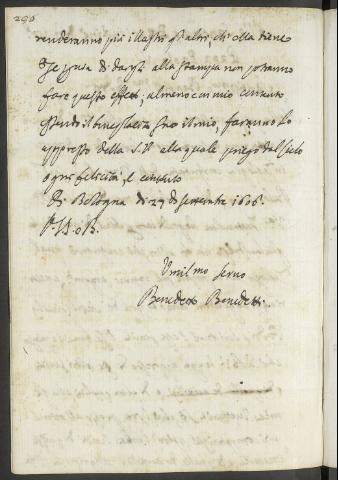 290
renderanno più illustri gl'altri, ch'ella tiene
di darsi alla stampa non potranno
fare questo effetto, almeno con mio contento
essendo il suo il mio, faranno lo
appresso della S.V. alla quale priego dal Cielo
ogni felicità, e contento
Di Bologna di 27 di Settembre 1606.
Umilmo servo
Benedetto Benedetti.